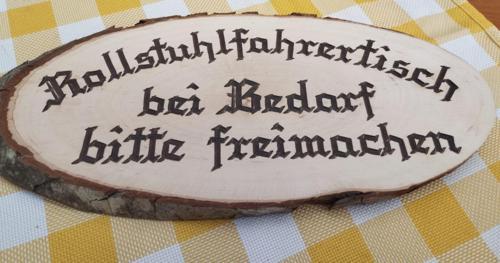 Rollstuhlfahrertisch
bei Bedarf
bitte freimachen